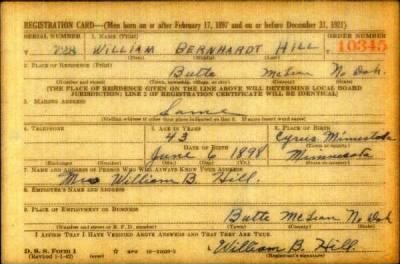 REGISTRATION CARD—(Men born on or after February 17, 1897 and on or before December 31, 1921)
SERIAL NUMBER 1. NAME (Print) ORDER NUMBER
WILLIAM BERNHARDT HILL 10345
(First) (Middle) (Last)
2. PLACE OF RESIDENCE (Print)
Butte McLean No Dak.
(Number and street) (Town, township, village, or city) (County) (State)
[THE PLACE OF RESIDENCE GIVEN ON THE LINE ABOVE WILL DETERMINE LOCAL BOARD
JURISDICTION; LINE 2 OF REGISTRATION CERTIFICATE WILL BE IDENTICAL]
3. MAILING ADDRESS
Same
(Mailing address if other than place indicated on line 2. If same insert word same)
4. TELEPHONE 5. AGE IN YEARS 6. PLACE OF BIRTH
43 Cyrus Minnesota
DATE OF BIRTH
June 6 1898 Minnesota
(Exchange) (Number) (Mo.) (Day) (Yr.) (State or country)
7. NAME AND ADDRESS OF PERSON WHO WILL ALWAYS KNOW YOUR ADDRESS
Mrs William B. Hill.
8. EMPLOYER'S NAME AND ADDRESS
9. PLACE OF EMPLOYMENT OR BUSINESS
Butte McLean No Dak
(Number and street or R. F. D. number) (Town) (County) (State)
I AFFIRM THAT I HAVE VERIFIED ABOVE ANSWERS AND THAT THEY ARE TRUE.
D. S. S. Form 1
(Revised 1-1-42) (over)
William B. Hill.